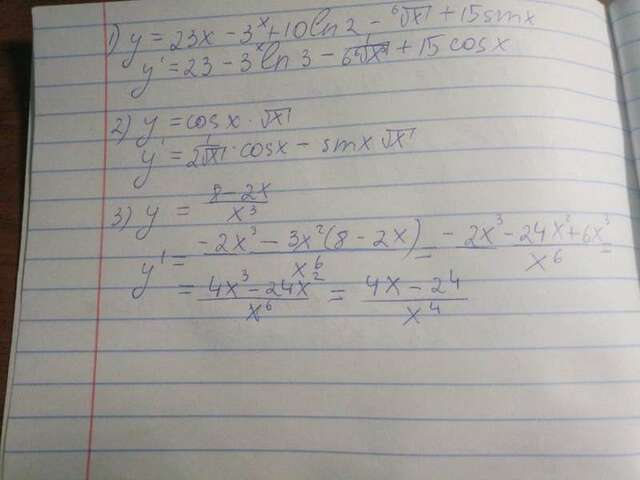 1) y = 23x - 3^x + 10 ln 2 - ⁶√x + 15 sin x
y' = 23 - 3^x ln 3 - 1/(6 ⁶√x) + 15 cos x
2) y = cos x · √x
y' = 1/(2√x) · cos x - sin x √x
3) y = (8 - 2x)/x^3
y' = (-2x^3 - 3x^2(8 - 2x))/x^6 = (-2x^3 - 24x^2 + 6x^3)/x^6 =
= (4x^3 - 24x^2)/x^6 = (4x - 24)/x^4